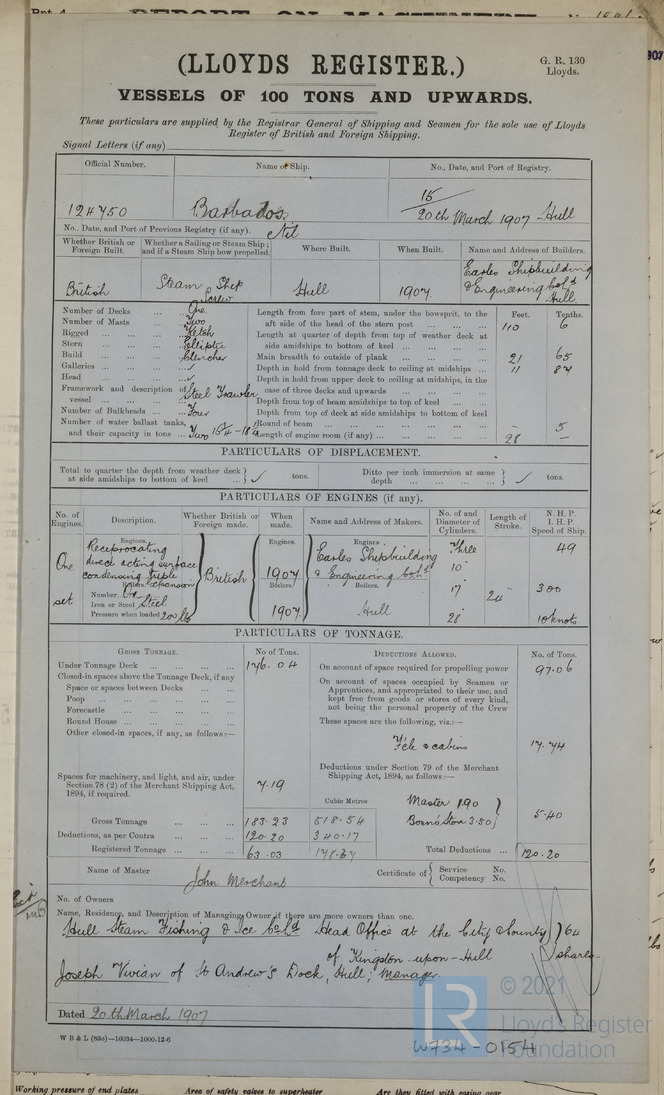 (LLOYDS REGISTER.)
G. R. 130
Lloyds.
VESSELS OF 100 TONS AND UPWARDS.
These particulars are supplied by the Registrar General of Shipping and Seamen for the sole use of Lloyds
Register of British and Foreign Shipping.
Signal Letters (if any)
Official Number. Name of Ship. No., Date, and Port of Registry.
124750 Barbados 15/20th March 1907 Hull
No., Date, and Port of Previous Registry (if any). Nil
Whether British or Foreign Built. Whether a Sailing or Steam Ship; and if a Steam Ship how propelled. Where Built. When Built. Name and Address of Builders.
British Steam Ship Screw Hull 1907 Earles Shipbuilding & Engineering Co Ld Hull
Number of Decks ... One
Number of Masts ... Two
Rigged ... Ketch
Stern ... Elliptic
Build ... Clencher
Galleries ... ✓
Head ... ✓
Framework and description of vessel ... Steel Trawler
Number of Bulkheads ... Four
Number of water ballast tanks, and their capacity in tons ... Two 15¾ - 18
Feet. Tenths.
Length from fore part of stem, under the bowsprit, to the aft side of the head of the stern post ... 110 6
Length at quarter of depth from top of weather deck at side amidships to bottom of keel ...
Main breadth to outside of plank ... 21 65
Depth in hold from tonnage deck to ceiling at midships ... 11 87
Depth in hold from upper deck to ceiling at midships, in the case of three decks and upwards ...
Depth from top of beam amidships to top of keel ...
Depth from top of deck at side amidships to bottom of keel
Round of beam ... - 5
Length of engine room (if any) ... 28 -
PARTICULARS OF DISPLACEMENT.
Total to quarter the depth from weather deck at side amidships to bottom of keel ... ✓ tons. Ditto per inch immersion at same depth ... ✓ tons.
PARTICULARS OF ENGINES (if any).
No. of Engines. Description. Whether British or Foreign made. When made. Name and Address of Makers. No. of and Diameter of Cylinders. Length of Stroke. N. H. P. I. H. P. Speed of Ship.
Engines. Engines. Engines.
One set Reciprocating direct acting surface condensing triple expansion British 1907 Earles Shipbuilding & Engineering Co Ld Three 49
10"
Boilers. Boilers. Boilers.
Number One 17 24" 300
Iron or Steel Steel
Pressure when loaded 200 lbs 1907 Hull 28" 10 knots
PARTICULARS OF TONNAGE.
GROSS TONNAGE. No of Tons. DEDUCTIONS ALLOWED. No. of Tons.
Under Tonnage Deck ... 176.04
Closed-in spaces above the Tonnage Deck, if any
Space or spaces between Decks ...
Poop ...
Forecastle ...
Round House ...
Other closed-in spaces, if any, as follows:—
Spaces for machinery, and light, and air, under Section 78 (2) of the Merchant Shipping Act, 1894, if required. 7.19
On account of space required for propelling power 97.06
On account of spaces occupied by Seamen or Apprentices, and appropriated to their use, and kept free from goods or stores of every kind, not being the personal property of the Crew
These spaces are the following, viz.:—
F'cle & cabins 17.74
Deductions under Section 79 of the Merchant Shipping Act, 1894, as follows:—
Cubic Metres Master 1.90
Bosn's Store 3.50 5.40
Gross Tonnage ... 183.23 518.54
Deductions, as per Contra ... 120.20 340.17
Registered Tonnage ... 63.03 178.37 Total Deductions ... 120.20
Name of Master John Merchant Certificate of { Service No. Competency No.
No. of Owners
Name, Residence, and Description of Managing Owner if there are more owners than one.
Hull Steam Fishing & Ice Co Ld Head Office at the City & County 64
of Kingston-upon-Hull shares
Joseph Vivian of St Andrew's Dock, Hull, Manager.
Dated 20th March 1907
W B & L (83o)—16034—1000-12-6
W734-0154
© 2021
Lloyd's Register
Foundation
Working pressure of end plates Area of safety valves to superheater Are they fitted with easing gear